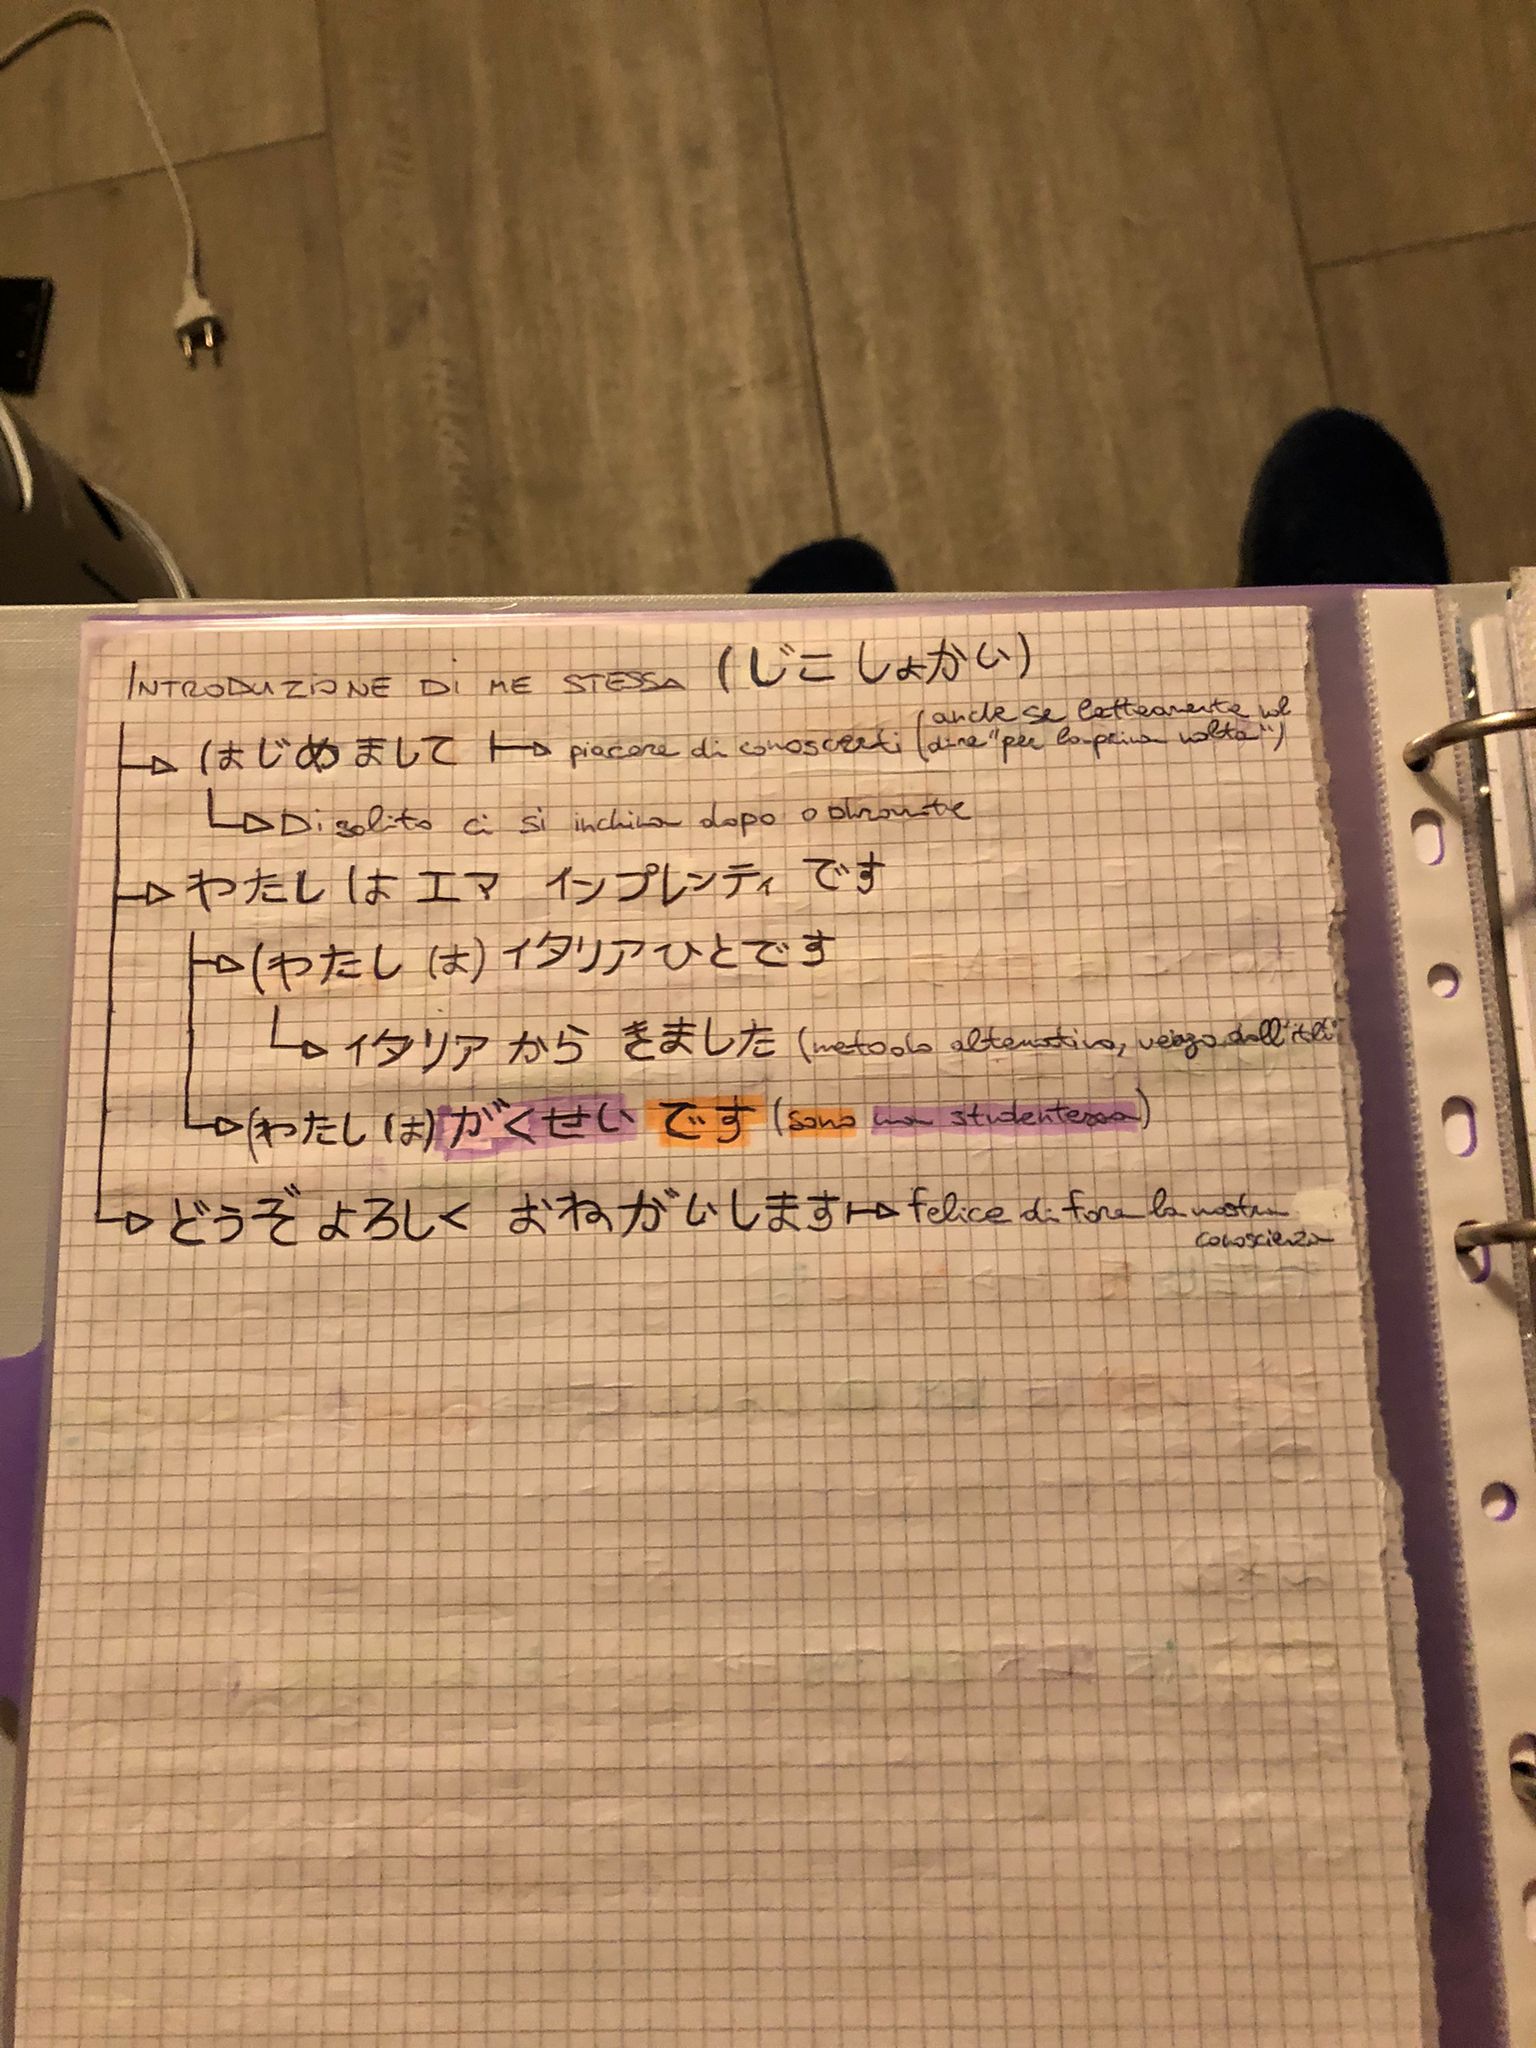 INTRODUZIONE DI ME STESSA (じこしょかい)
はじめまして piacere di conoscerti (anche se letteramente vol
dire "per la prima volta")
Di solito ci si inchina dopo o durante
わたしは エマ インプレンティ です
(わたし は) イタリアひとです
イタリア から きました (metodo alternativo, vengo dall'
(わたし は) がくせい です (sono una studentessa)
どうぞ よろしく おねがいします felice di fare la nostra
conoscienza